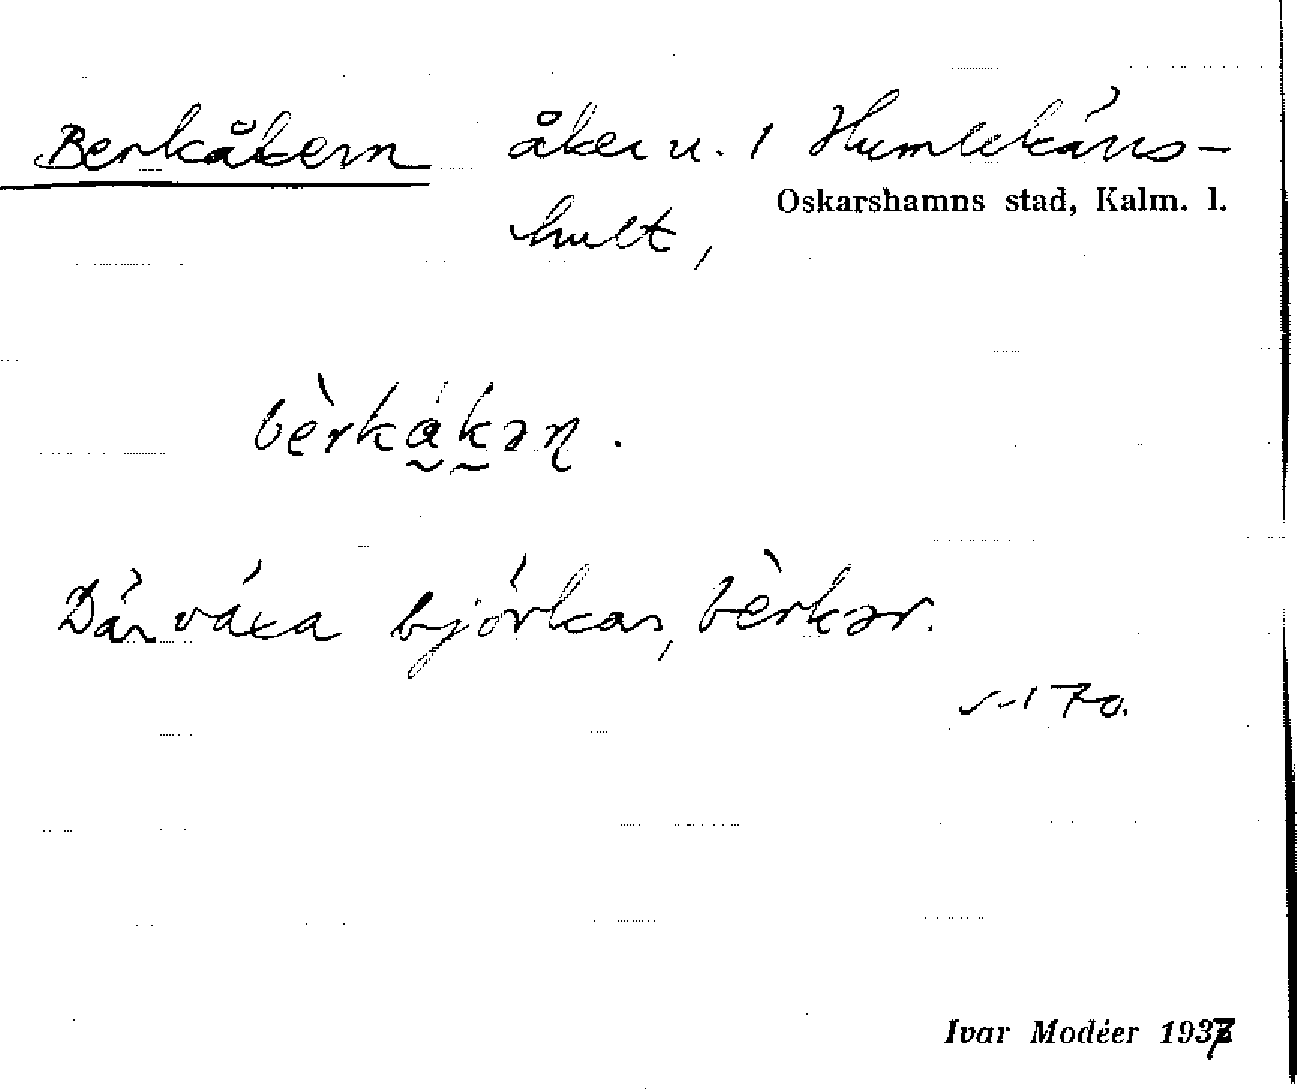 Berkåkern åker u. 1 Humlekärrs-
Oskarshamns stad, Kalm. l.
hult,
bèrkåkəɳ.
Där växa björkar, bèrkər.
s-170.
Ivar Modéer 1937